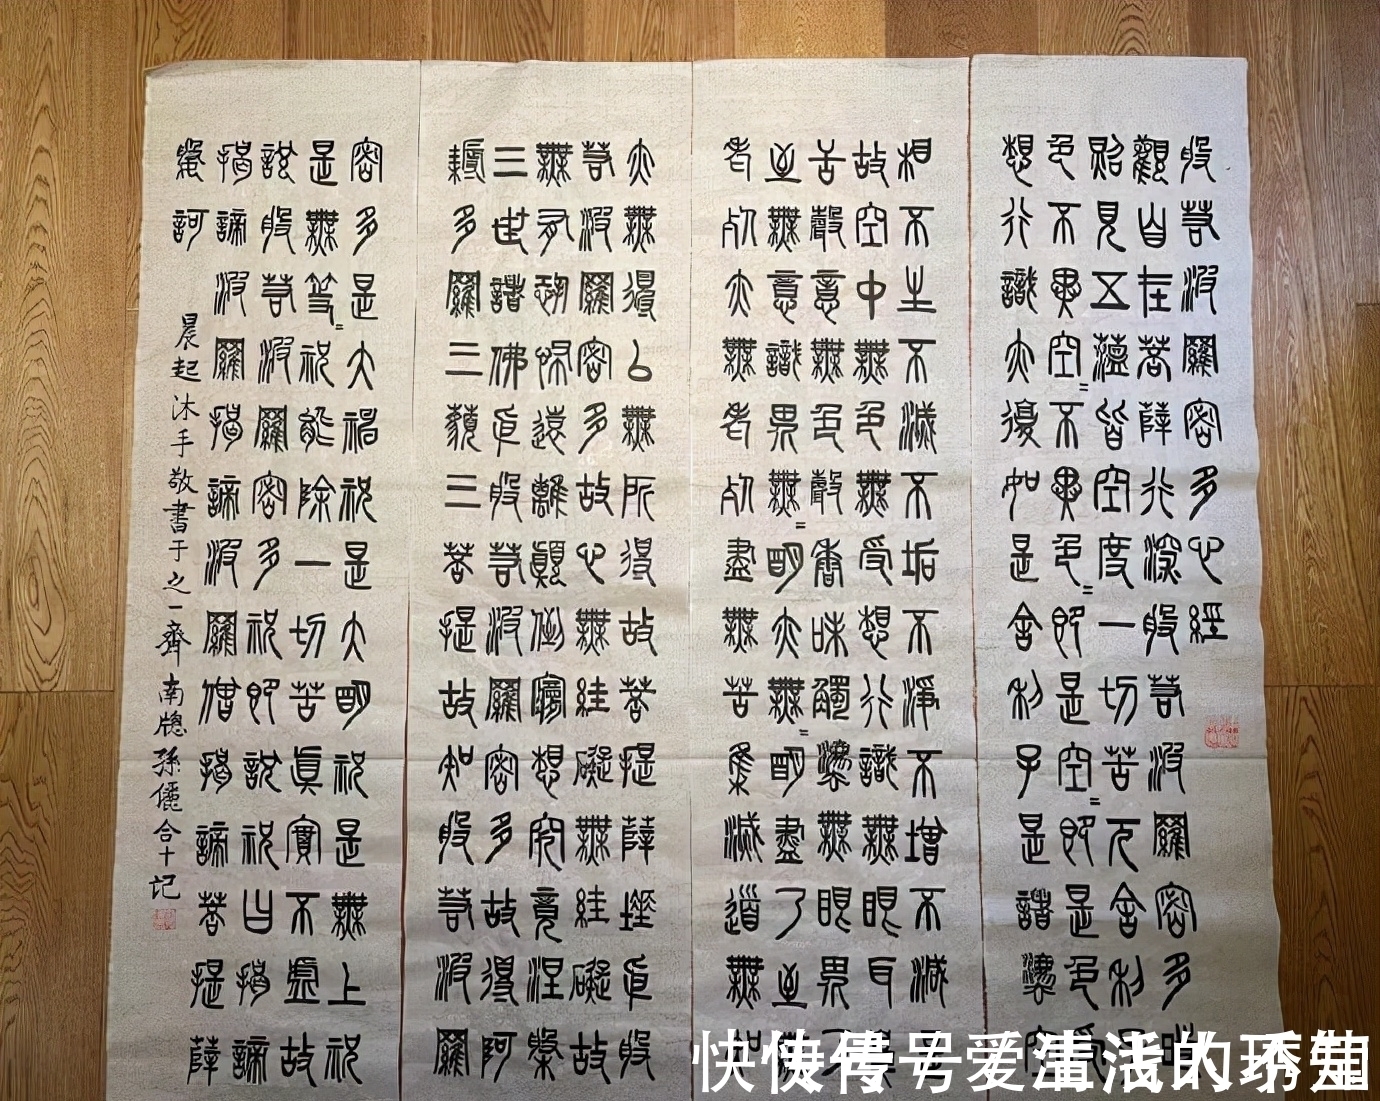 般若波羅密多心經
觀自在菩薩行深般若波羅密多時
照見五蘊皆空度一切苦厄舍利
色不異空=不異色=即是空=即是色受
想行識亦復如是舍利子是諸灋空
相不生不滅不垢不淨不增不減
故空中無色無受想行識無眼耳
舌聲意無色聲香味觸灋無眼界乃
至無意識界無=明亦無=明盡乃至無
老死亦無老死盡無苦集滅道無知
亦無得以無所得故菩提薩埵依般
若波羅密多故心無罣礙無罣礙故
無有恐怖遠離顛倒夢想究竟涅槃
三世諸佛依般若波羅密多故得阿
耨多羅三藐三菩提故知般若波羅
密多是大神祝是大明祝是無上祝
是無等=祝能除一切苦真實不虛故
說般若波羅密多祝即說祝曰揭諦
揭諦波羅揭諦波羅僧揭諦菩提薩
婆訶
晨起沐手敬書于之一齋南牕孫儷合十記
快传号